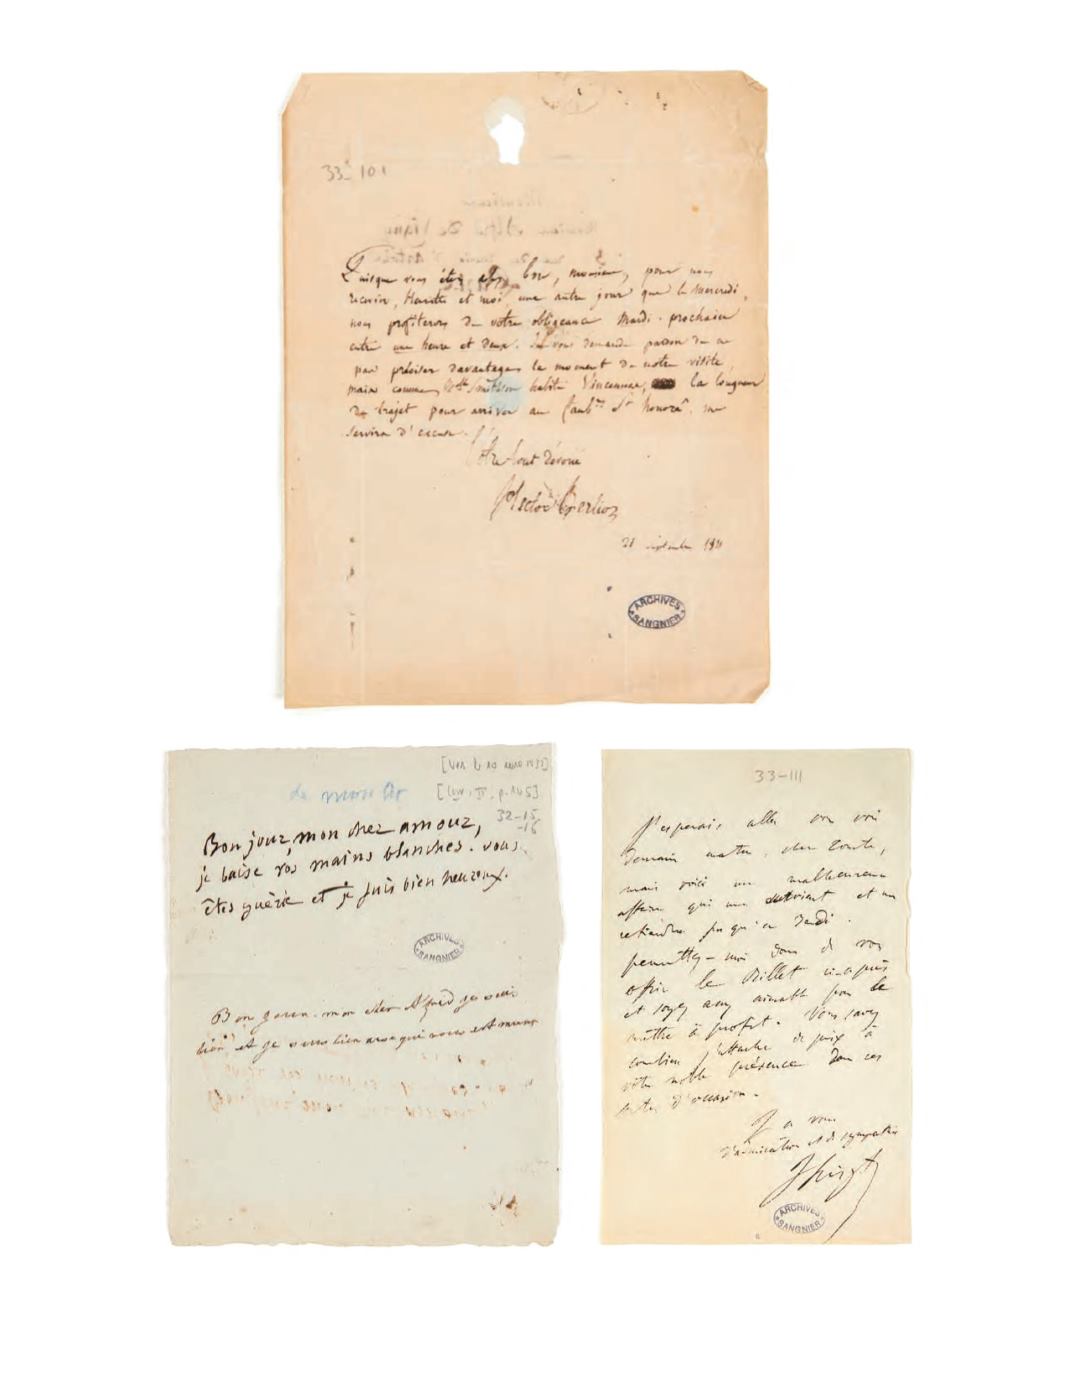 33-101
Puisque vous êtes assez bon, monsieur, pour nous
recevoir, Henriette et moi, une autre jour que le mercredi,
nous profiterons de votre obligeance mardi prochain
entre une heure et deux. Je vous demande pardon de ne
pas préciser davantage le moment de notre visite,
mais comme Mlle Smithson habite Vincennes, la longueur
du trajet pour arriver au faubg St honoré me
servira d'excuse.
Votre tout dévoué
Hector Berlioz
septembre
ARCHIVES SANGNIER
32-15
-16
Bonjour, mon cher amour,
je baise vos mains blanches. vous
êtes guérie et je suis bien heureux.
ARCHIVES SANGNIER
Bon jour mon cher Alfred je suis
bien et je vous
33-111
J'espérais aller vous voir
demain matin, cher Comte,
mais voici une malheureuse
affaire qui me survient et me
retiendra jusqu'à Jeudi.
permettez-moi donc de vous
offrir le Billet ci-après
et soyez assez aimable pour le
mettre à profit. Vous savez
combien j'attache de prix à
votre noble présence dans ces
sortes d'occasion.
à vous
d'admiration et de sympathie
FLiszt
ARCHIVES SANGNIER